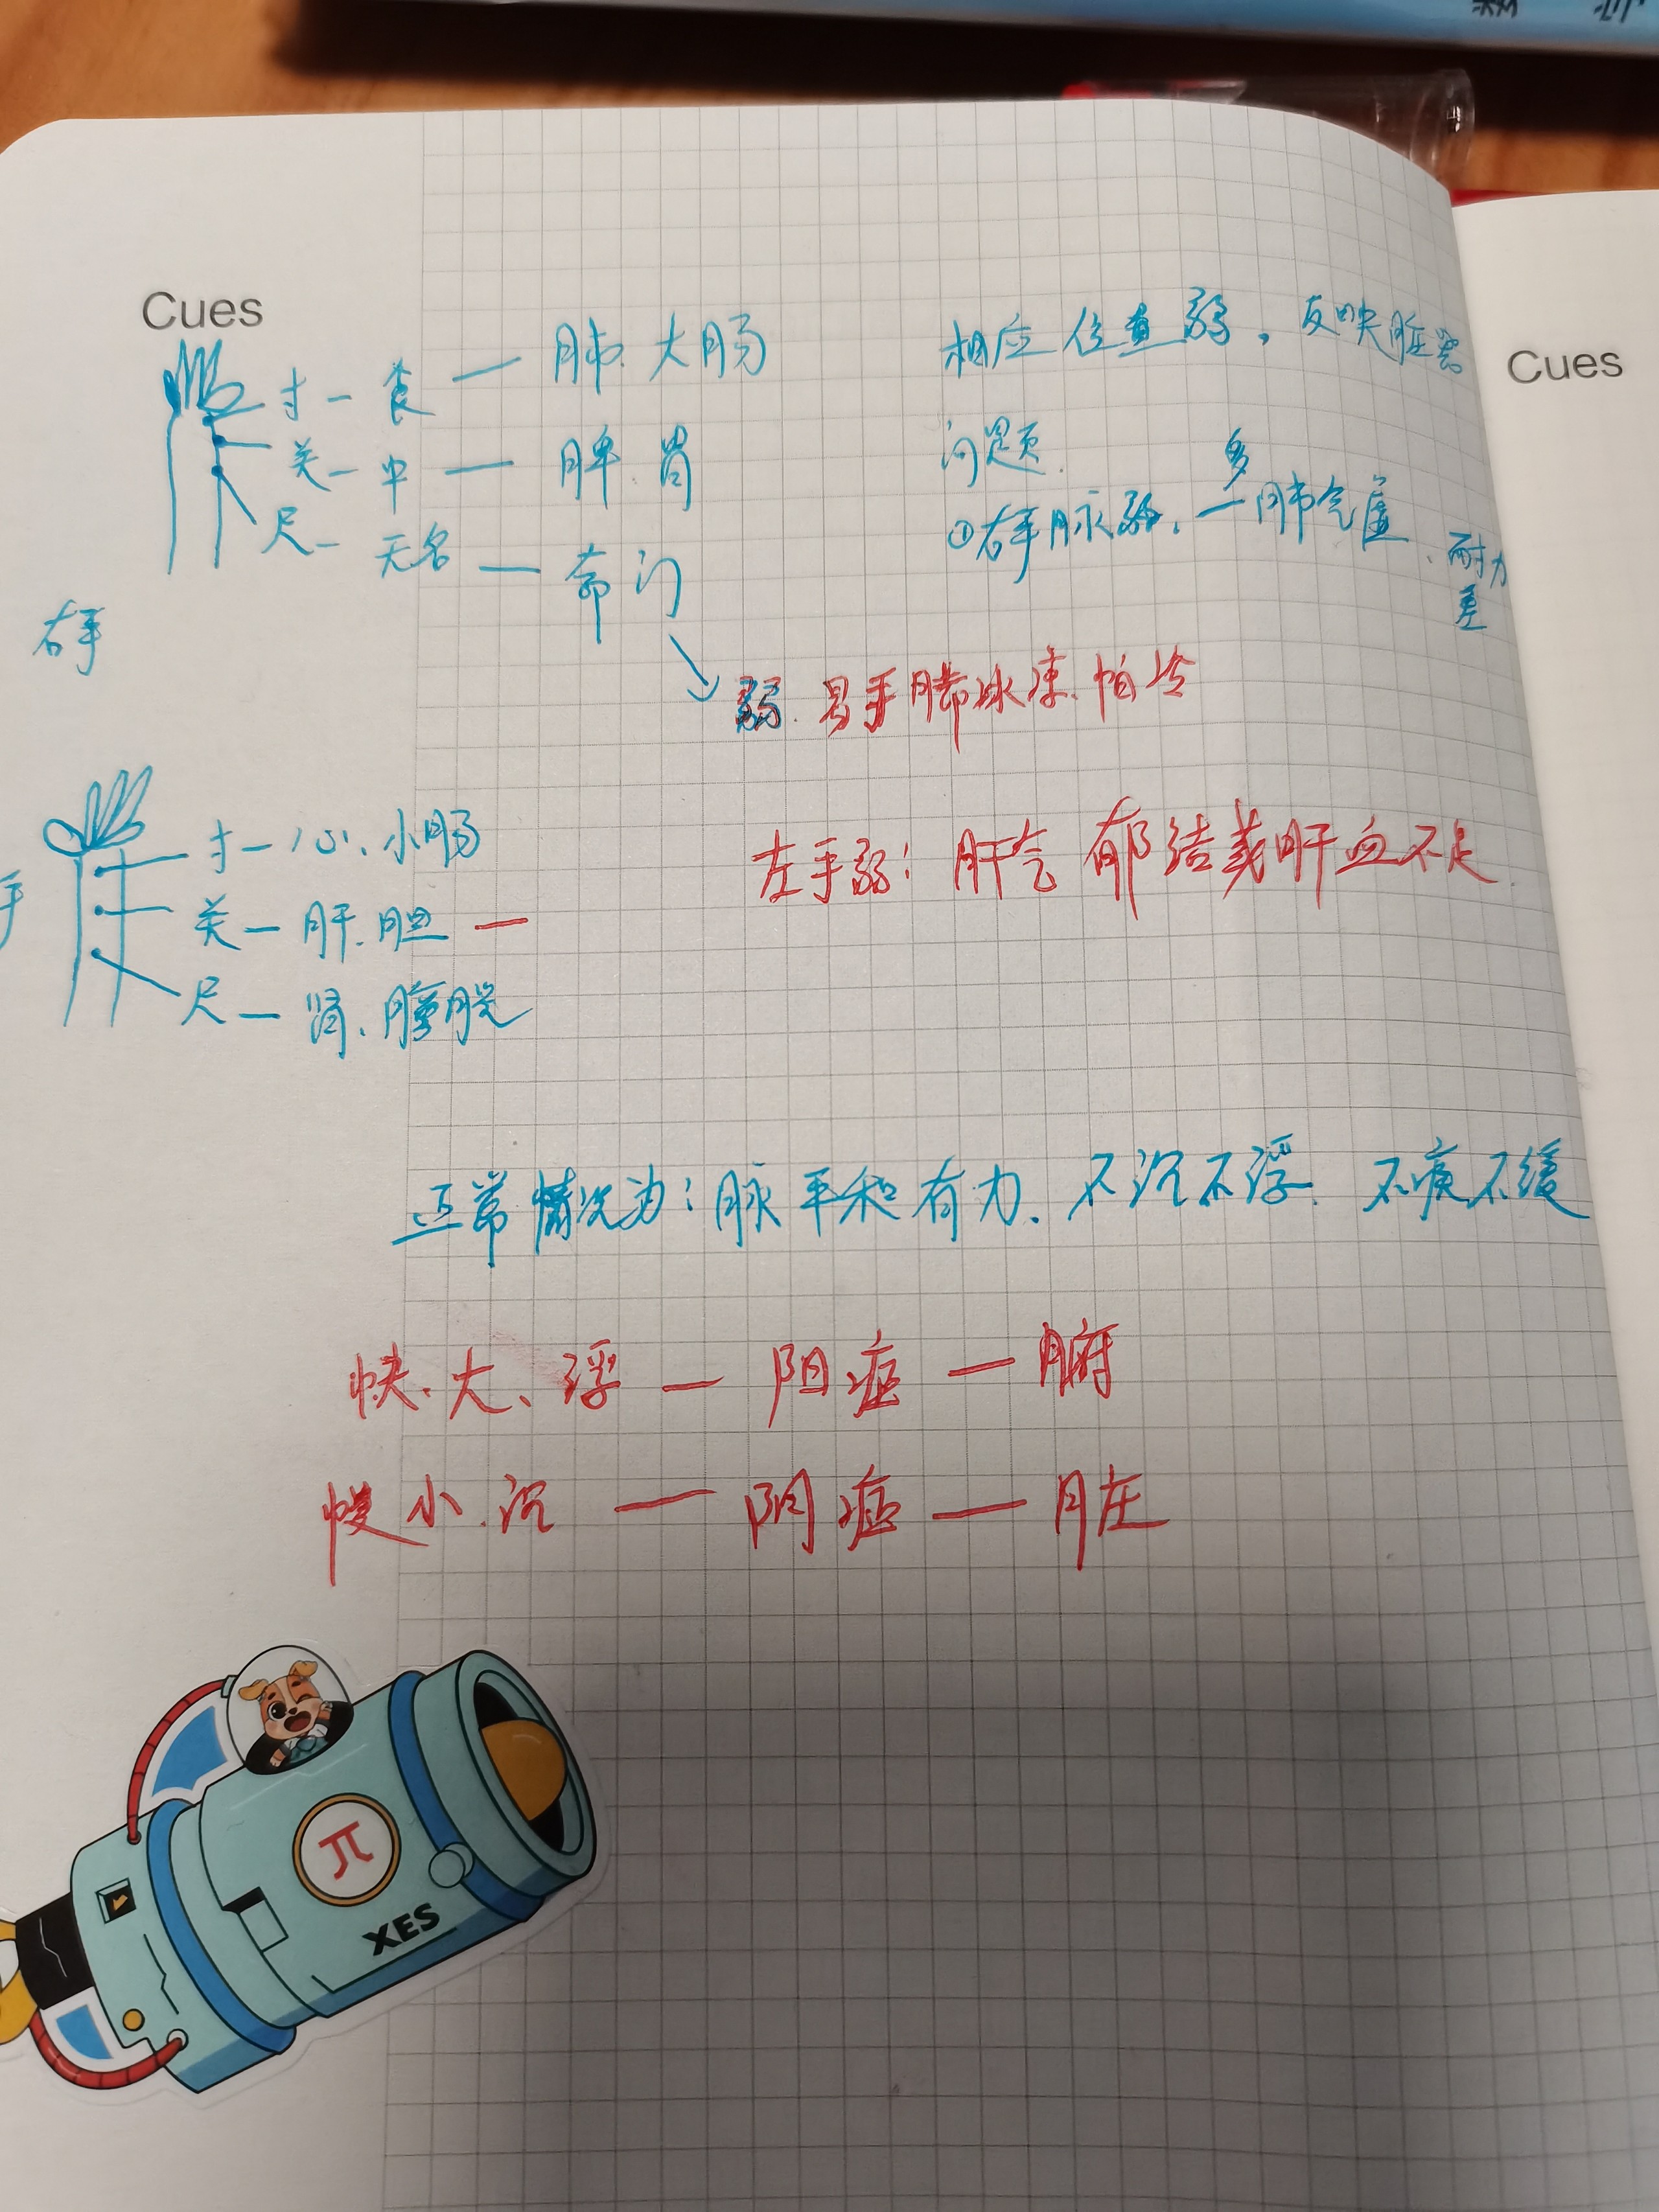 Cues
寸－食－肺.大肠
关－中－脾.胃
尺－无名－命门
右手
相应位置弱，反映脏器
问题.
①右手脉弱，多－肺气虚、耐力差
弱.易手脚冰凉.怕冷
寸－心、小肠
关－肝.胆－
尺－肾、膀胱
手
左手弱：肝气郁结或肝血不足.
正常情况为：脉平和有力.不沉不浮.不疾不缓
快.大、浮－阳症－腑
慢小.沉－阴症－脏
π
XES
Cues